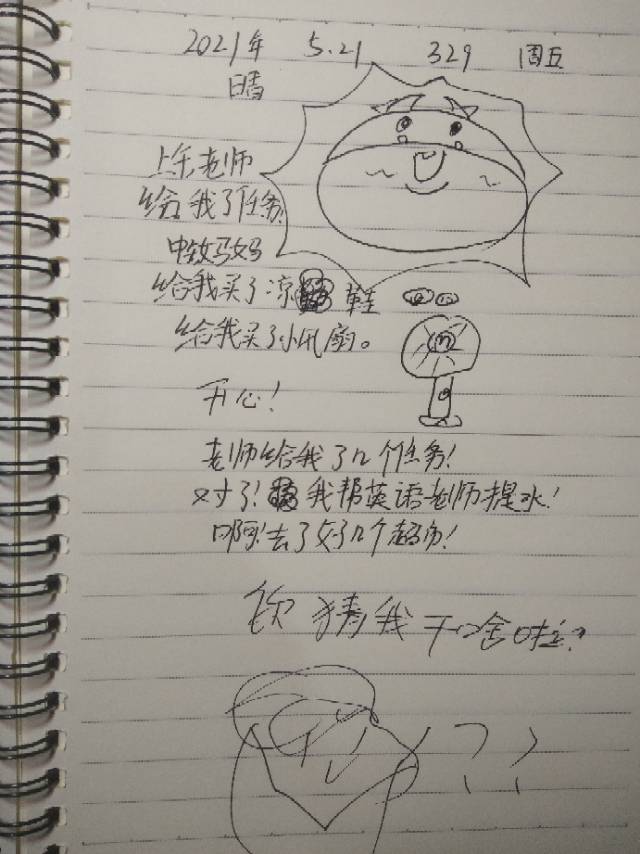 2021年 5.21 329 周五
晴
上午老师
给我了任务!
中午妈妈
给我买了凉鞋
给我买了小风扇。
开心!
老师给我了几个任务!
对了!我帮英语老师提水!
啊!去了好几个超市!
你猜我干啥啦?
??